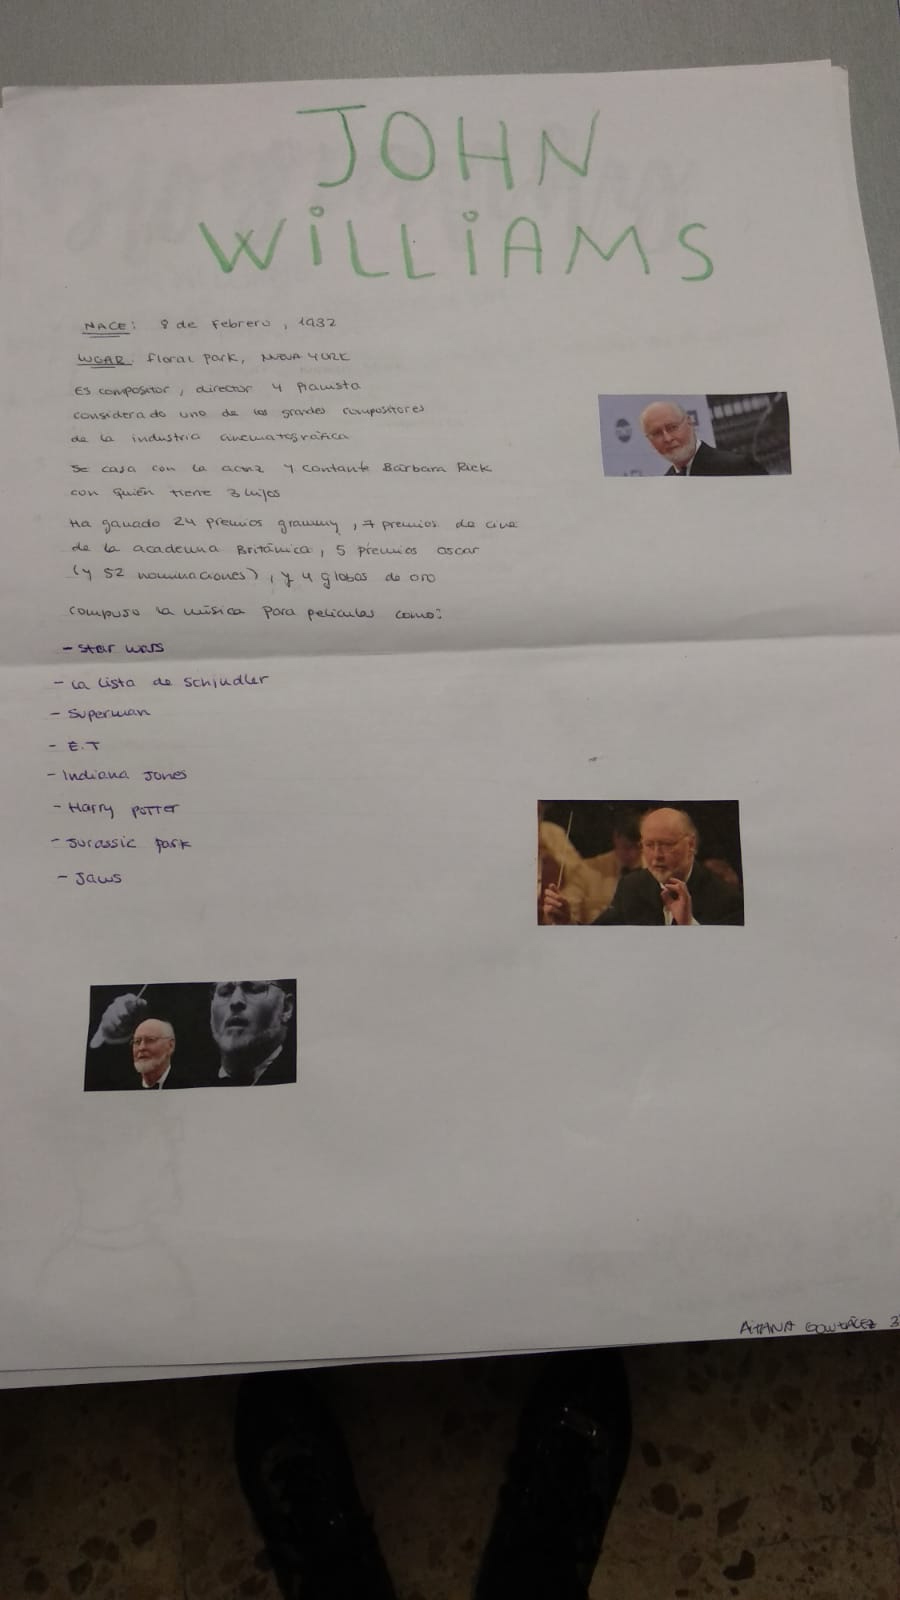 JOHN
WiLLiAMS
NACE: 8 de Febrero, 1932
LUGAR: Floral Park, NUEVA YORK
Es compositor, director y pianista
considerado uno de los grandes compositores
de la industria cinematográfica
Se casa con la actriz y cantante Barbara Rick
con quién tiene 3 hijos
Ha ganado 24 premios grammy, 7 premios de cine
de la academia Británica, 5 premios oscar
(y 52 nominaciones), y 4 globos de oro
compuso la música para películas como:
- Star wars
- La lista de Schindler
- Superman
- E.T
- Indiana Jones
- Harry Potter
- Jurassic park
- Jaws
AiTANA GONZÁLEZ 3